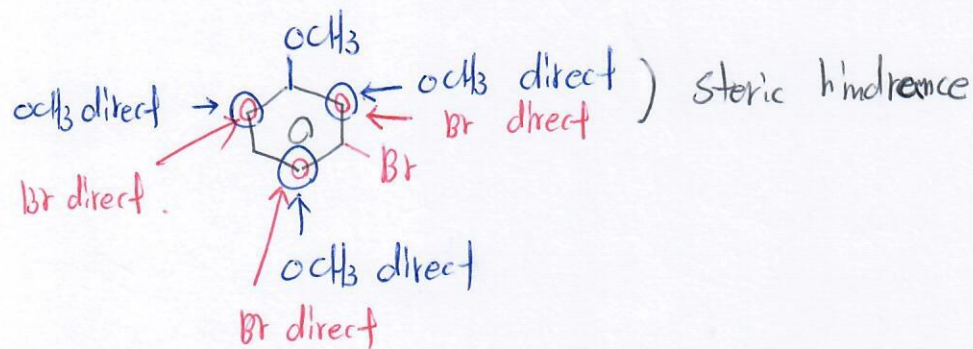 OCH3
OCH3 direct → ← OCH3 direct ) steric hindrance
Br direct
Br
Br direct.
OCH3 direct
Br direct